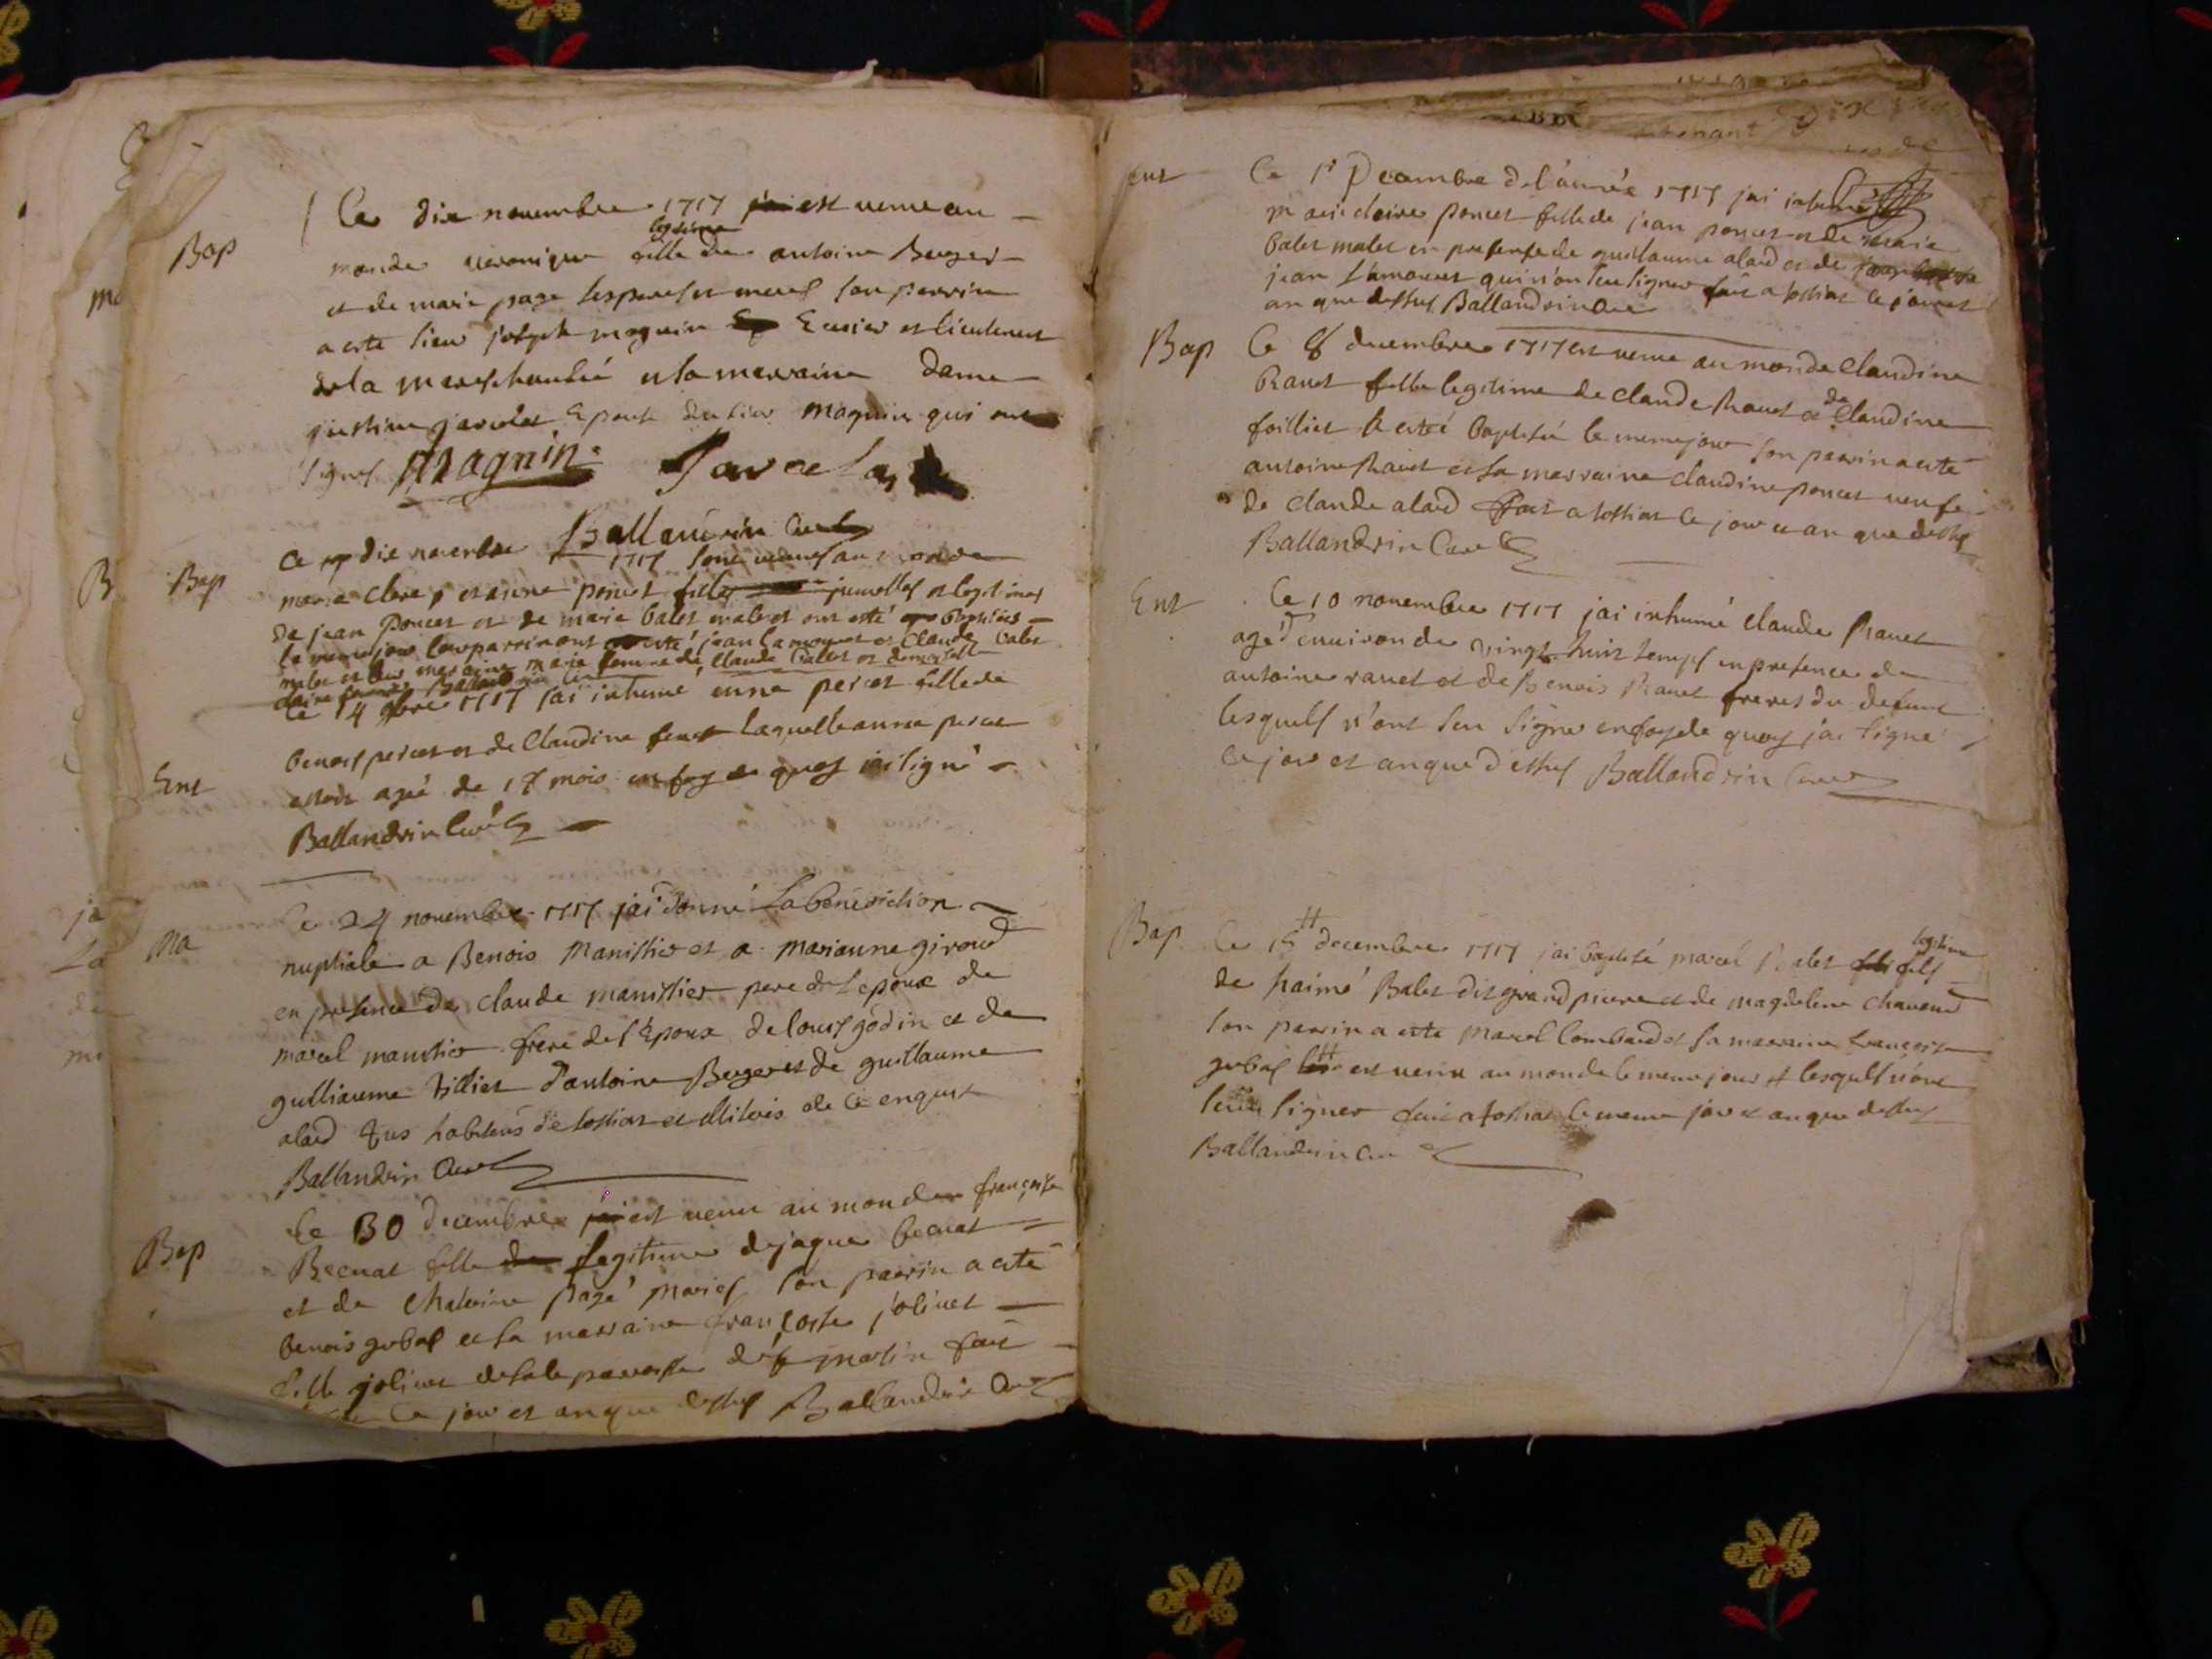 Bap
Ce dix novembre 1717 est venue au
monde veronique legitime fille de antoine Berger
et de marie page ses pere et mere son parrin
a esté sieur joseph magnin Ecuier et lieutenent
de la mareschaussé et la marraine dame
justine javelot Epouse du sieur magnin qui ont
signes Magnin Javelot
Ballandrin Curé
Bap
Ce dix novembre 1717 sont venues au monde
marie clere et anne poncet filles jumelles et legitimes
de jean poncet et de marie balet malet et ont esté baptisées
le meme jour leur parrin ont esté jean lamouret et Claude balet
malet et leur marraine marie femme de Claude balet et
claire Ballandrin Curé
Ent
Ce 14 9bre 1717 jai inhumé anne percet fille de
benoit percet et de Claudine laquelle anne percet
estoit agée de 18 mois en foy de quoy jai signé
Ballandrin Curé
Ma
Ce 24 novembre 1717 jai donné la benediction
nuptiale a Benois Manissier et a marianne giroud
en presence de claude manissier pere de lepoux de
marcel manissier frere de l'Epoux de louis godin et de
gulliaume tillier d'antoine Berger et de guillaume
alard tous habitans de
Ballandrin Curé
Bap
Ce 30 decembre est venue au monde françoise
Becuat fille legitime de jaque becuat
et de page mariés son parrin a esté
benois gubal et la marraine françoise jolivet
fille jolivet de la paroisse de st martin fait
Ce jour et an que dessus Ballandrin Curé
Ent
Ce 1er Decembre de l'année 1717 jai inhumé
marie claire poncet fille de jean poncet et de marie
balet malet en presence de guillaume alard et de
jean lamouret qui n'ont seu signer fait a ce jour et
an que dessus Ballandrin Curé
Bap
Ce 8 decembre 1717 est venue au monde Claudine
Ravet fille legitime de claude Ravet et de Claudine
foilliet et a esté baptisée le meme jour son parrin a esté
antoine Ravet et sa marraine claudine poncet veufe
de claude alard fait a ce jour et an que dessus
Ballandrin Curé
Ent
Ce 10 novembre 1717 jai inhumé claude Ravet
agé d'environ de vingt huit temps en presence de
antoine ravet et de Benois Ravet freres du defunt
lesquels n'ont seu signer en foy de quoy jai signé
ce jour et an que dessus Ballandrin Curé
Bap
Ce 15 decembre 1717 jai baptisé marcel Balet fils legitime
de haimé Balet dit grand pierre et de magdelene chavend
son parrin a esté marcel lombard et sa marraine françoise
gubal est venu au monde le meme jour lesquels n'ont
seu signer fait a le meme jour et an que dessus
Ballandrin Curé